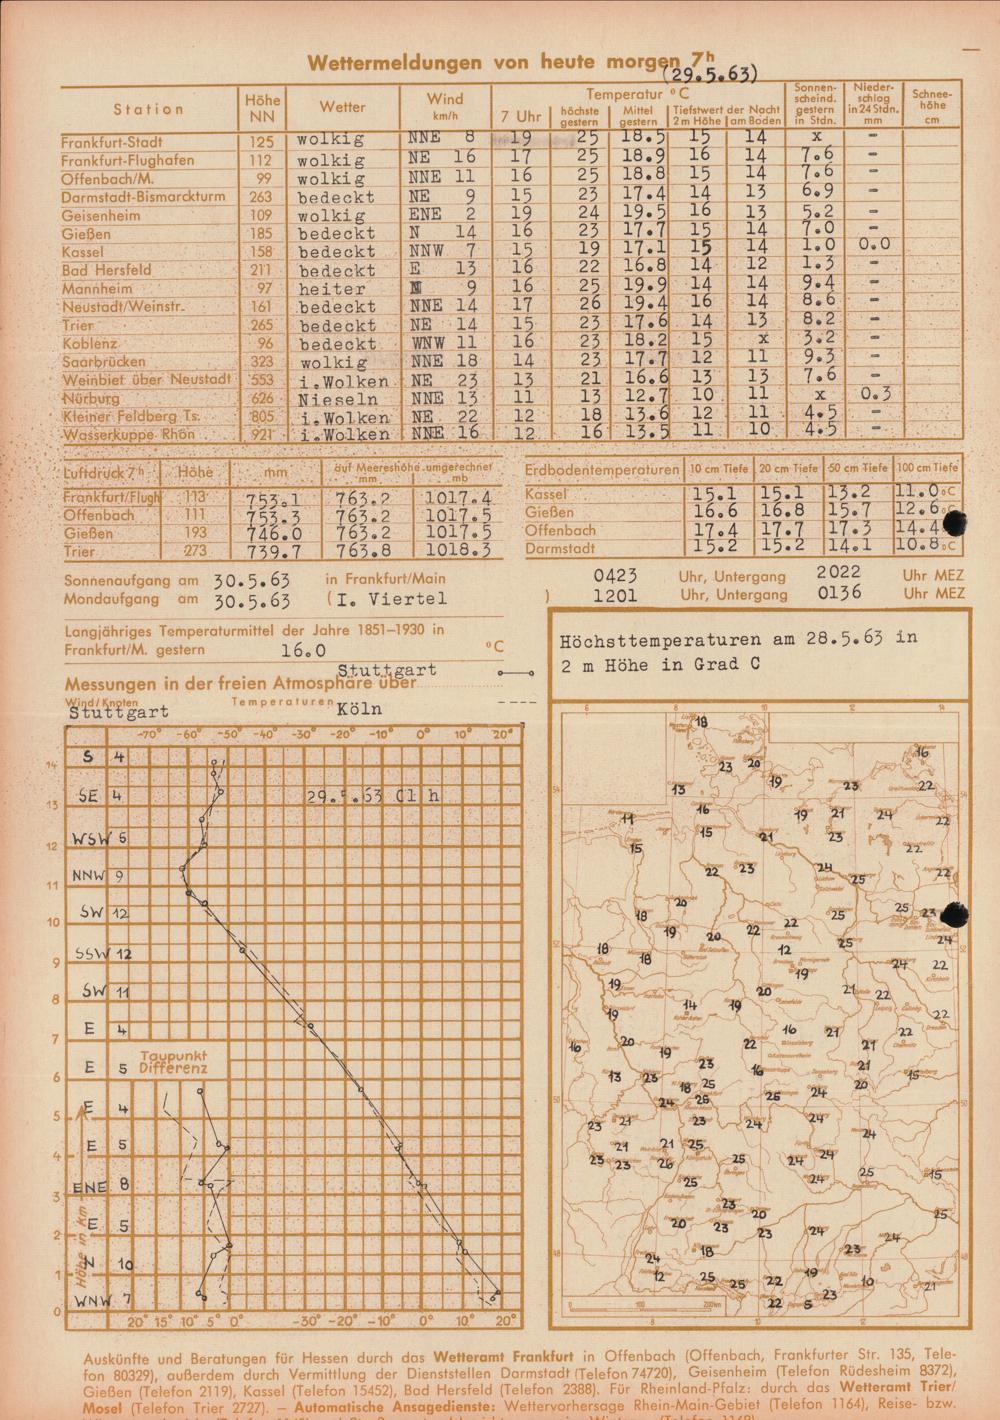 Wettermeldungen von heute morgen 7h
(29.5.63)
Station Höhe NN Wetter Wind km/h Temperatur °C Sonnenscheind. gestern in Stdn. Niederschlag in 24 Stdn. mm Schneehöhe cm
7 Uhr höchste gestern Mittel gestern Tiefstwert der Nacht 2 m Höhe am Boden
Frankfurt-Stadt 125 wolkig NNE 8 19 25 18.5 15 14 x -
Frankfurt-Flughafen 112 wolkig NE 16 17 25 18.9 16 14 7.6 -
Offenbach/M. 99 wolkig NNE 11 16 25 18.8 15 14 7.6 -
Darmstadt-Bismarckturm 263 bedeckt NE 9 15 23 17.4 14 13 6.9 -
Geisenheim 109 wolkig ENE 2 19 24 19.5 16 13 5.2 -
Gießen 185 bedeckt N 14 16 23 17.7 15 14 7.0 -
Kassel 158 bedeckt NNW 7 15 19 17.1 15 14 1.0 0.0
Bad Hersfeld 211 bedeckt E 13 16 22 16.8 14 12 1.3 -
Mannheim 97 heiter N 9 16 25 19.9 14 14 9.4 -
Neustadt/Weinstr. 161 bedeckt NNE 14 17 26 19.4 16 14 8.6 -
Trier 265 bedeckt NE 14 15 23 17.6 14 13 8.2 -
Koblenz 96 bedeckt WNW 11 16 23 18.2 15 x 3.2 -
Saarbrücken 323 wolkig NNE 18 14 23 17.7 12 11 9.3 -
Weinbiet über Neustadt 553 i.Wolken NE 23 13 21 16.6 13 13 7.6 -
Nürburg 626 Nieseln NNE 13 11 13 12.7 10 11 x 0.3
Kleiner Feldberg Ts. 805 i.Wolken NE 22 12 18 13.6 12 11 4.5 -
Wasserkuppe Rhön 921 i.Wolken NNE 16 12 16 13.5 11 10 4.5 -
Luftdruck 7h Höhe mm auf Meereshöhe umgerechnet mm mb
Frankfurt/Flugh 113 753.1 763.2 1017.4
Offenbach 111 753.3 763.2 1017.5
Gießen 193 746.0 763.2 1017.5
Trier 273 739.7 763.8 1018.3
Erdbodentemperaturen 10 cm Tiefe 20 cm Tiefe 50 cm Tiefe 100 cm Tiefe
Kassel 15.1 15.1 13.2 11.0 °C
Gießen 16.6 16.8 15.7 12.6 °C
Offenbach 17.4 17.7 17.3 14.4
Darmstadt 15.2 15.2 14.1 10.8 °C
Sonnenaufgang am 30.5.63 in Frankfurt/Main 0423 Uhr, Untergang 2022 Uhr MEZ
Mondaufgang am 30.5.63 (I. Viertel ) 1201 Uhr, Untergang 0136 Uhr MEZ
Langjähriges Temperaturmittel der Jahre 1851–1930 in
Frankfurt/M. gestern 16.0 °C
Stuttgart
Messungen in der freien Atmosphäre über
Wind/Knoten Temperaturen Köln
Stuttgart
-70° -60° -50° -40° -30° -20° -10° 0° 10° 20°
14 S 4
SE 4 29.5.63 01 h
13
WSW 5
12
NNW 9
11
SW 12
10
SSW 12
9
SW 11
8
E 4
7
E 5 Taupunkt Differenz
6
E 4
5
E 5
4
ENE 8
3
E 5
2
N 10
1
WNW 7
0
Höhe in Km
20° 15° 10° 5° 0° -30° -20° -10° 0° 10° 20°
Höchsttemperaturen am 28.5.63 in
2 m Höhe in Grad C
6 8 10 12 14
18
16
23 20
13 19 23 22
11 16 19 21 24 22
15 15 21 23 22
22 23 24 25 22
18 20 25 25 23
19 20 22 22 25 24
18 18 12 24 22
19 19 20 21 22
19 14 19 22
16 20 19 22 16 21 22
21
13 23 23 16 21 15
18 25 20
24 26 26 24
23 21 23 24 24 24
21 21 25
23 23 26 25 24 24
25 24 25 15
23 25
20 23 20 23 24 24
24 18 23
12 25 25 22 19 10 21
23
22 5
0 100 200km
Auskünfte und Beratungen für Hessen durch das Wetteramt Frankfurt in Offenbach (Offenbach, Frankfurter Str. 135, Tele-
fon 80329), außerdem durch Vermittlung der Dienststellen Darmstadt (Telefon 74720), Geisenheim (Telefon Rüdesheim 8372),
Gießen (Telefon 2119), Kassel (Telefon 15452), Bad Hersfeld (Telefon 2388). Für Rheinland-Pfalz: durch das Wetteramt Trier/
Mosel (Telefon Trier 2727). — Automatische Ansagedienste: Wettervorhersage Rhein-Main-Gebiet (Telefon 1164), Reise- bzw.